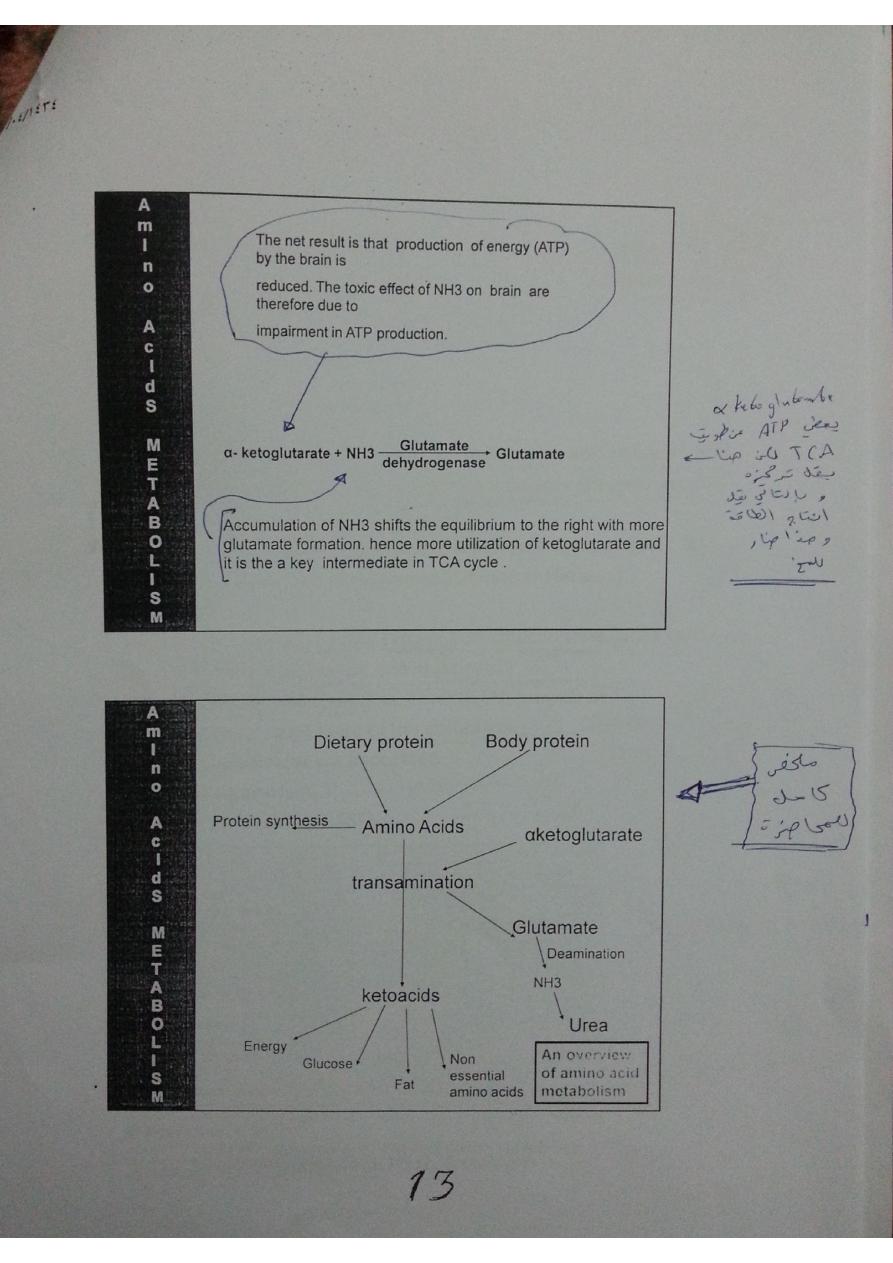 AmIno AcIdS METABOLISM
The net result is that production of energy (ATP)
by the brain is
reduced. The toxic effect of NH3 on brain are
therefore due to
impairment in ATP production.
α- ketoglutarate + NH3 Glutamate dehydrogenase Glutamate
Accumulation of NH3 shifts the equilibrium to the right with more
glutamate formation. hence more utilization of ketoglutarate and
it is the a key intermediate in TCA cycle .
α keto glutarate
يعطي ATP عن طريق
TCA لكن هنا
يقل تركيزه
و بالتالي يقل
انتاج الطاقة
و هذا ضار
للمخ
AmIno AcIdS METABOLISM
Dietary protein
Body protein
Protein synthesis
Amino Acids
αketoglutarate
transamination
Glutamate
Deamination
NH3
ketoacids
Urea
Energy
Glucose
Fat
Non
essential
amino acids
An overview
of amino acid
metabolism
ملخص
كامل
للمحاضرة
13